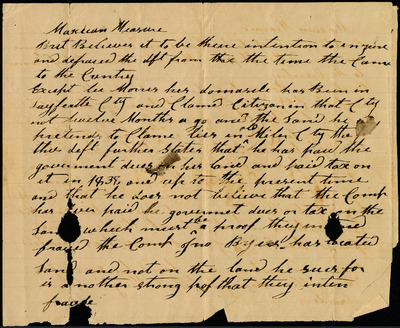 Mexican Measure
But Believes it to be theire intention to enjure
and defraud the deft from this the time the Came
to the Cuntry
Except lee Morris her domacile has Been in
Layfeatte Cty and Claims Citizan in that Cty
not twelve Months a go and the Land he
pretends to Clame lies in Miler Cty the
the deft further states that he has paid the
government dues on her land and paid tax on
it in 1839, and up to the present time
and that he does not believe that the Comp
has Ever paid he goverment dues or tax on the
Land which must be a proof they
fraud the Comp no has located
Land and not on the land he sues for
is another strong prof that they inten
fraude